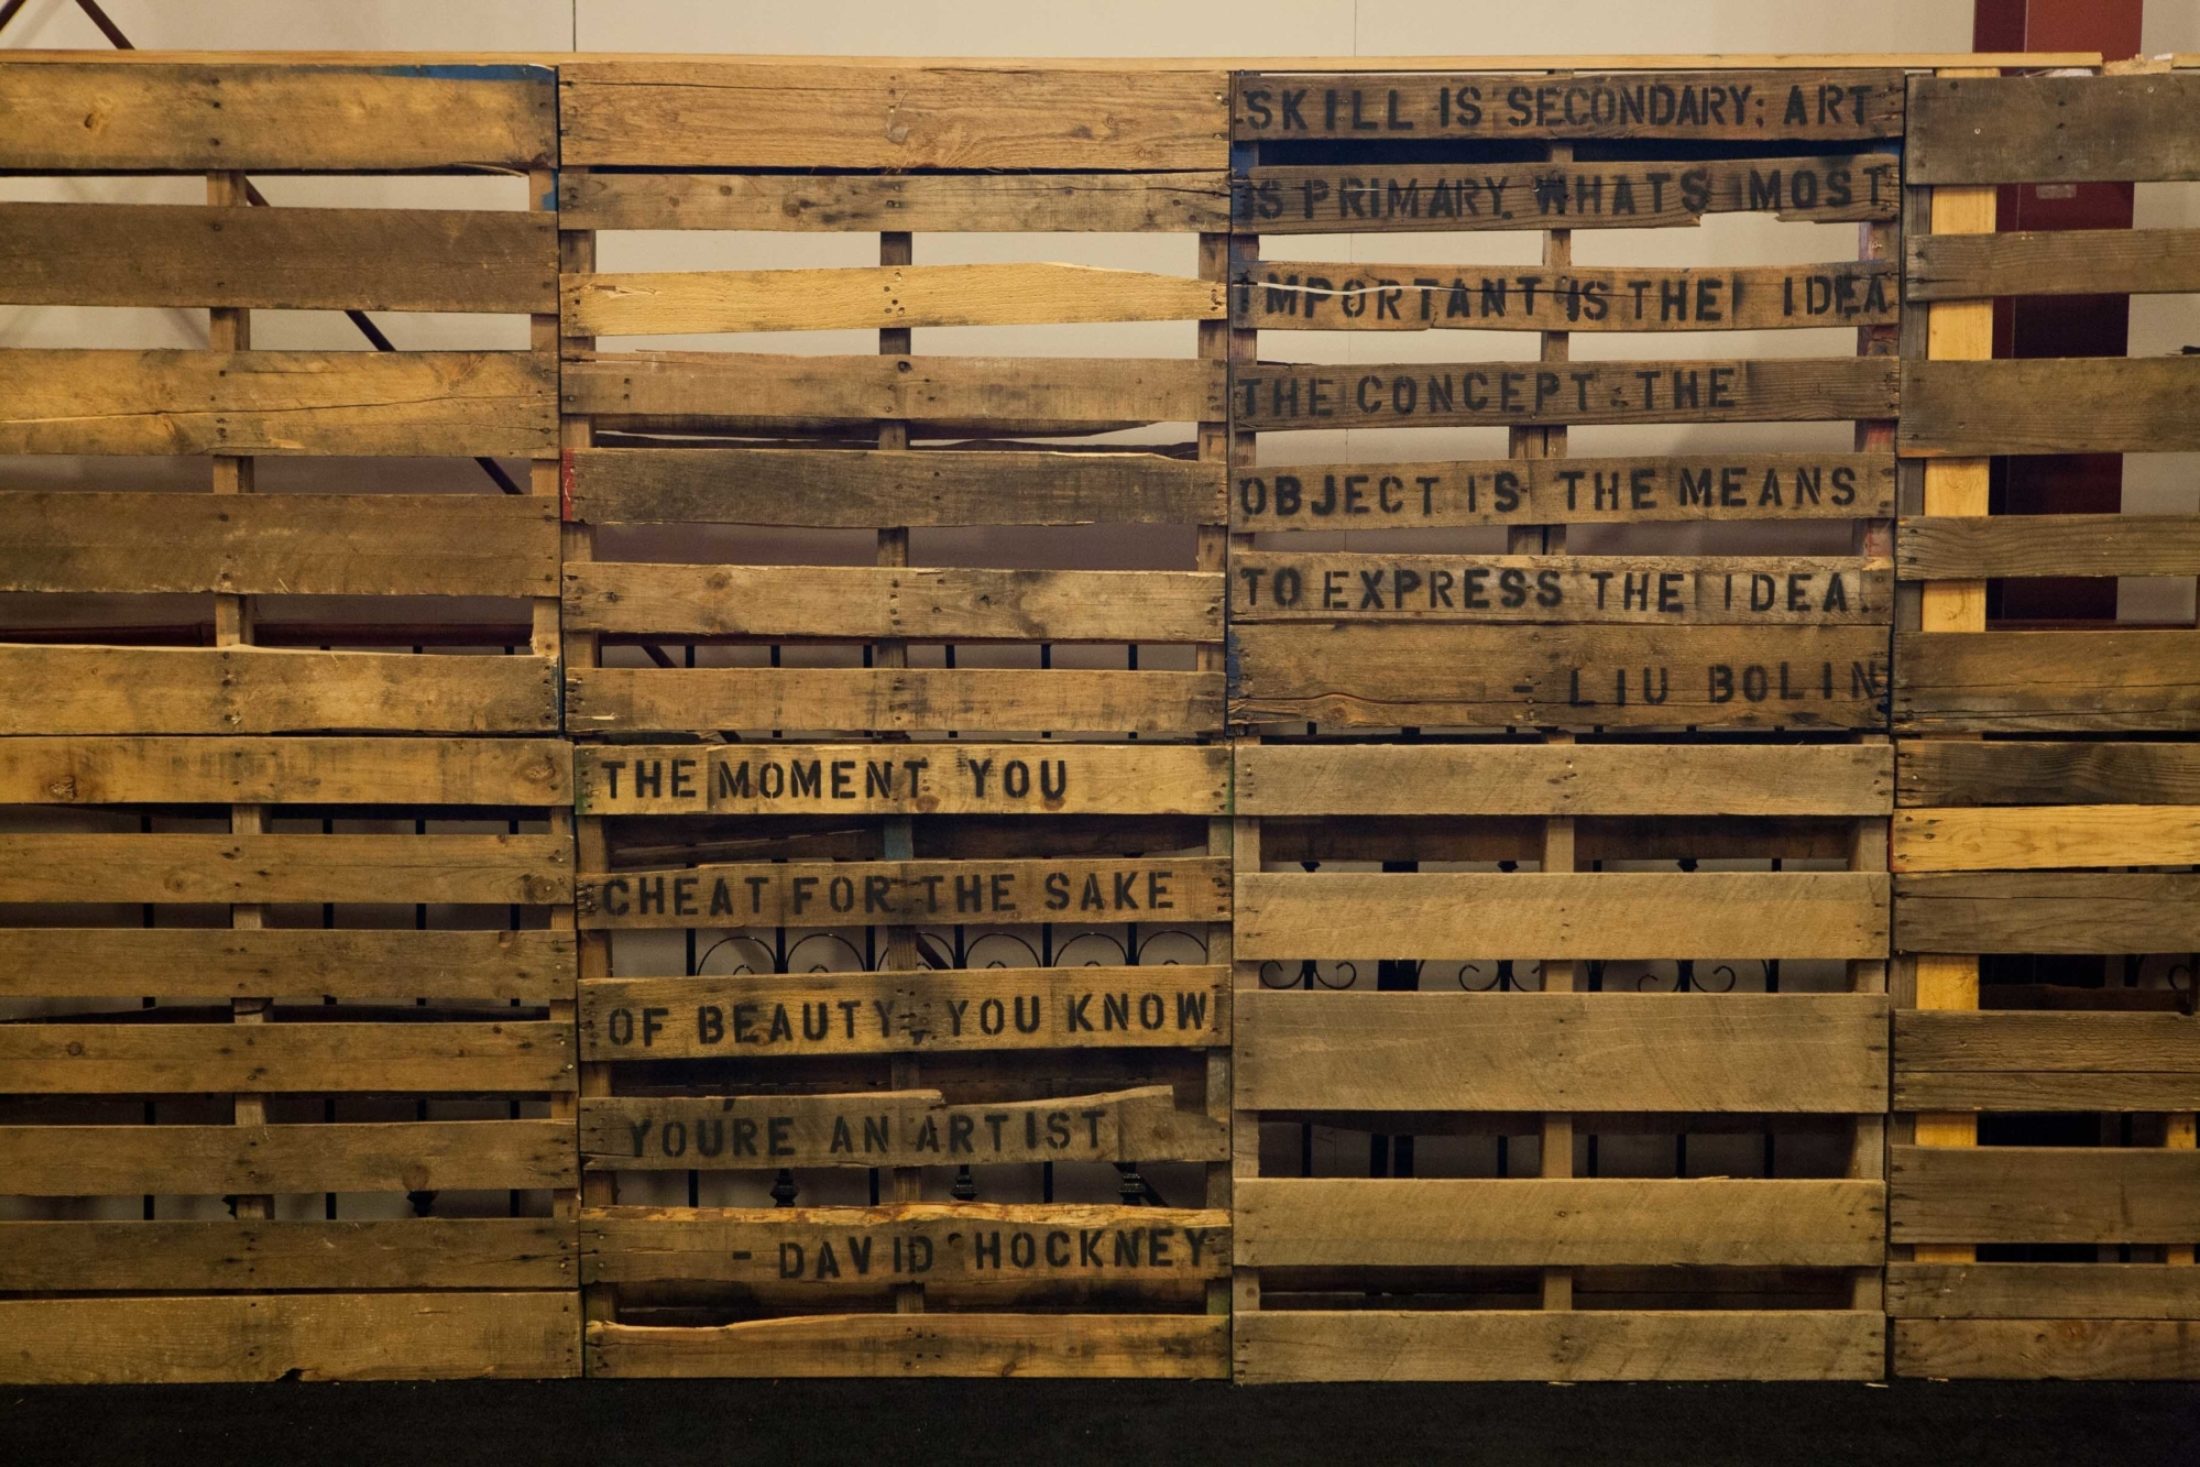 SKILL IS SECONDARY; ART
IS PRIMARY. WHATS MOST
IMPORTANT IS THE IDEA
THE CONCEPT. THE
OBJECT IS THE MEANS
TO EXPRESS THE IDEA.
- LIU BOLIN
THE MOMENT YOU
CHEAT FOR THE SAKE
OF BEAUTY, YOU KNOW
YOU'RE AN ARTIST
- DAVID HOCKNEY